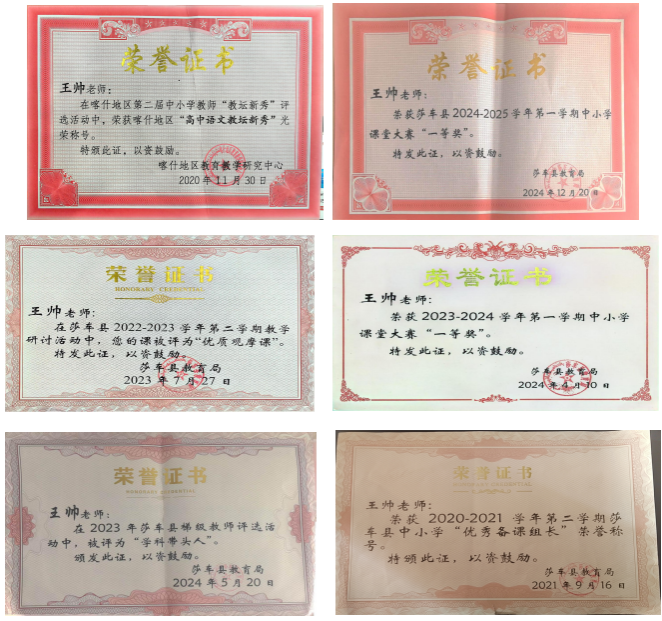 荣誉证书
王帅老师：
在喀什地区第二届中小学教师“教坛新秀”评
选活动中，荣获喀什地区“高中语文教坛新秀”光
荣称号。
特颁此证，以资鼓励。
喀什地区教育教学研究中心
2020年11月30日
荣誉证书
王帅老师：
荣获莎车县2024-2025学年第一学期中小学
课堂大赛“一等奖”。
特发此证，以资鼓励。
莎车县教育局
2024年12月20日
荣誉证书
HONORARY CREDENTIAL
王帅老师：
在莎车县2022-2023学年第二学期教学
研讨活动中，您的课被评为“优质观摩课”。
特发此证，以资鼓励。
莎车县教育局
2023年7月27日
荣誉证书
王帅老师：
荣获2023-2024学年第一学期中小学
课堂大赛“一等奖”。
特发此证，以资鼓励。
莎车县教育局
2024年4月10日
荣誉证书
HONORARY CREDENTIAL
王帅老师：
在2023年莎车县梯级教师评选活
动中，被评为“学科带头人”。
颁发此证，以资鼓励。
莎车县教育局
2024年5月20日
荣誉证书
HONORARY CREDENTIAL
王帅老师：
荣获2020-2021学年第二学期莎
车县中小学“优秀备课组长”荣誉称
号。
特颁此证，以资鼓励。
莎车县教育局
2021年9月16日